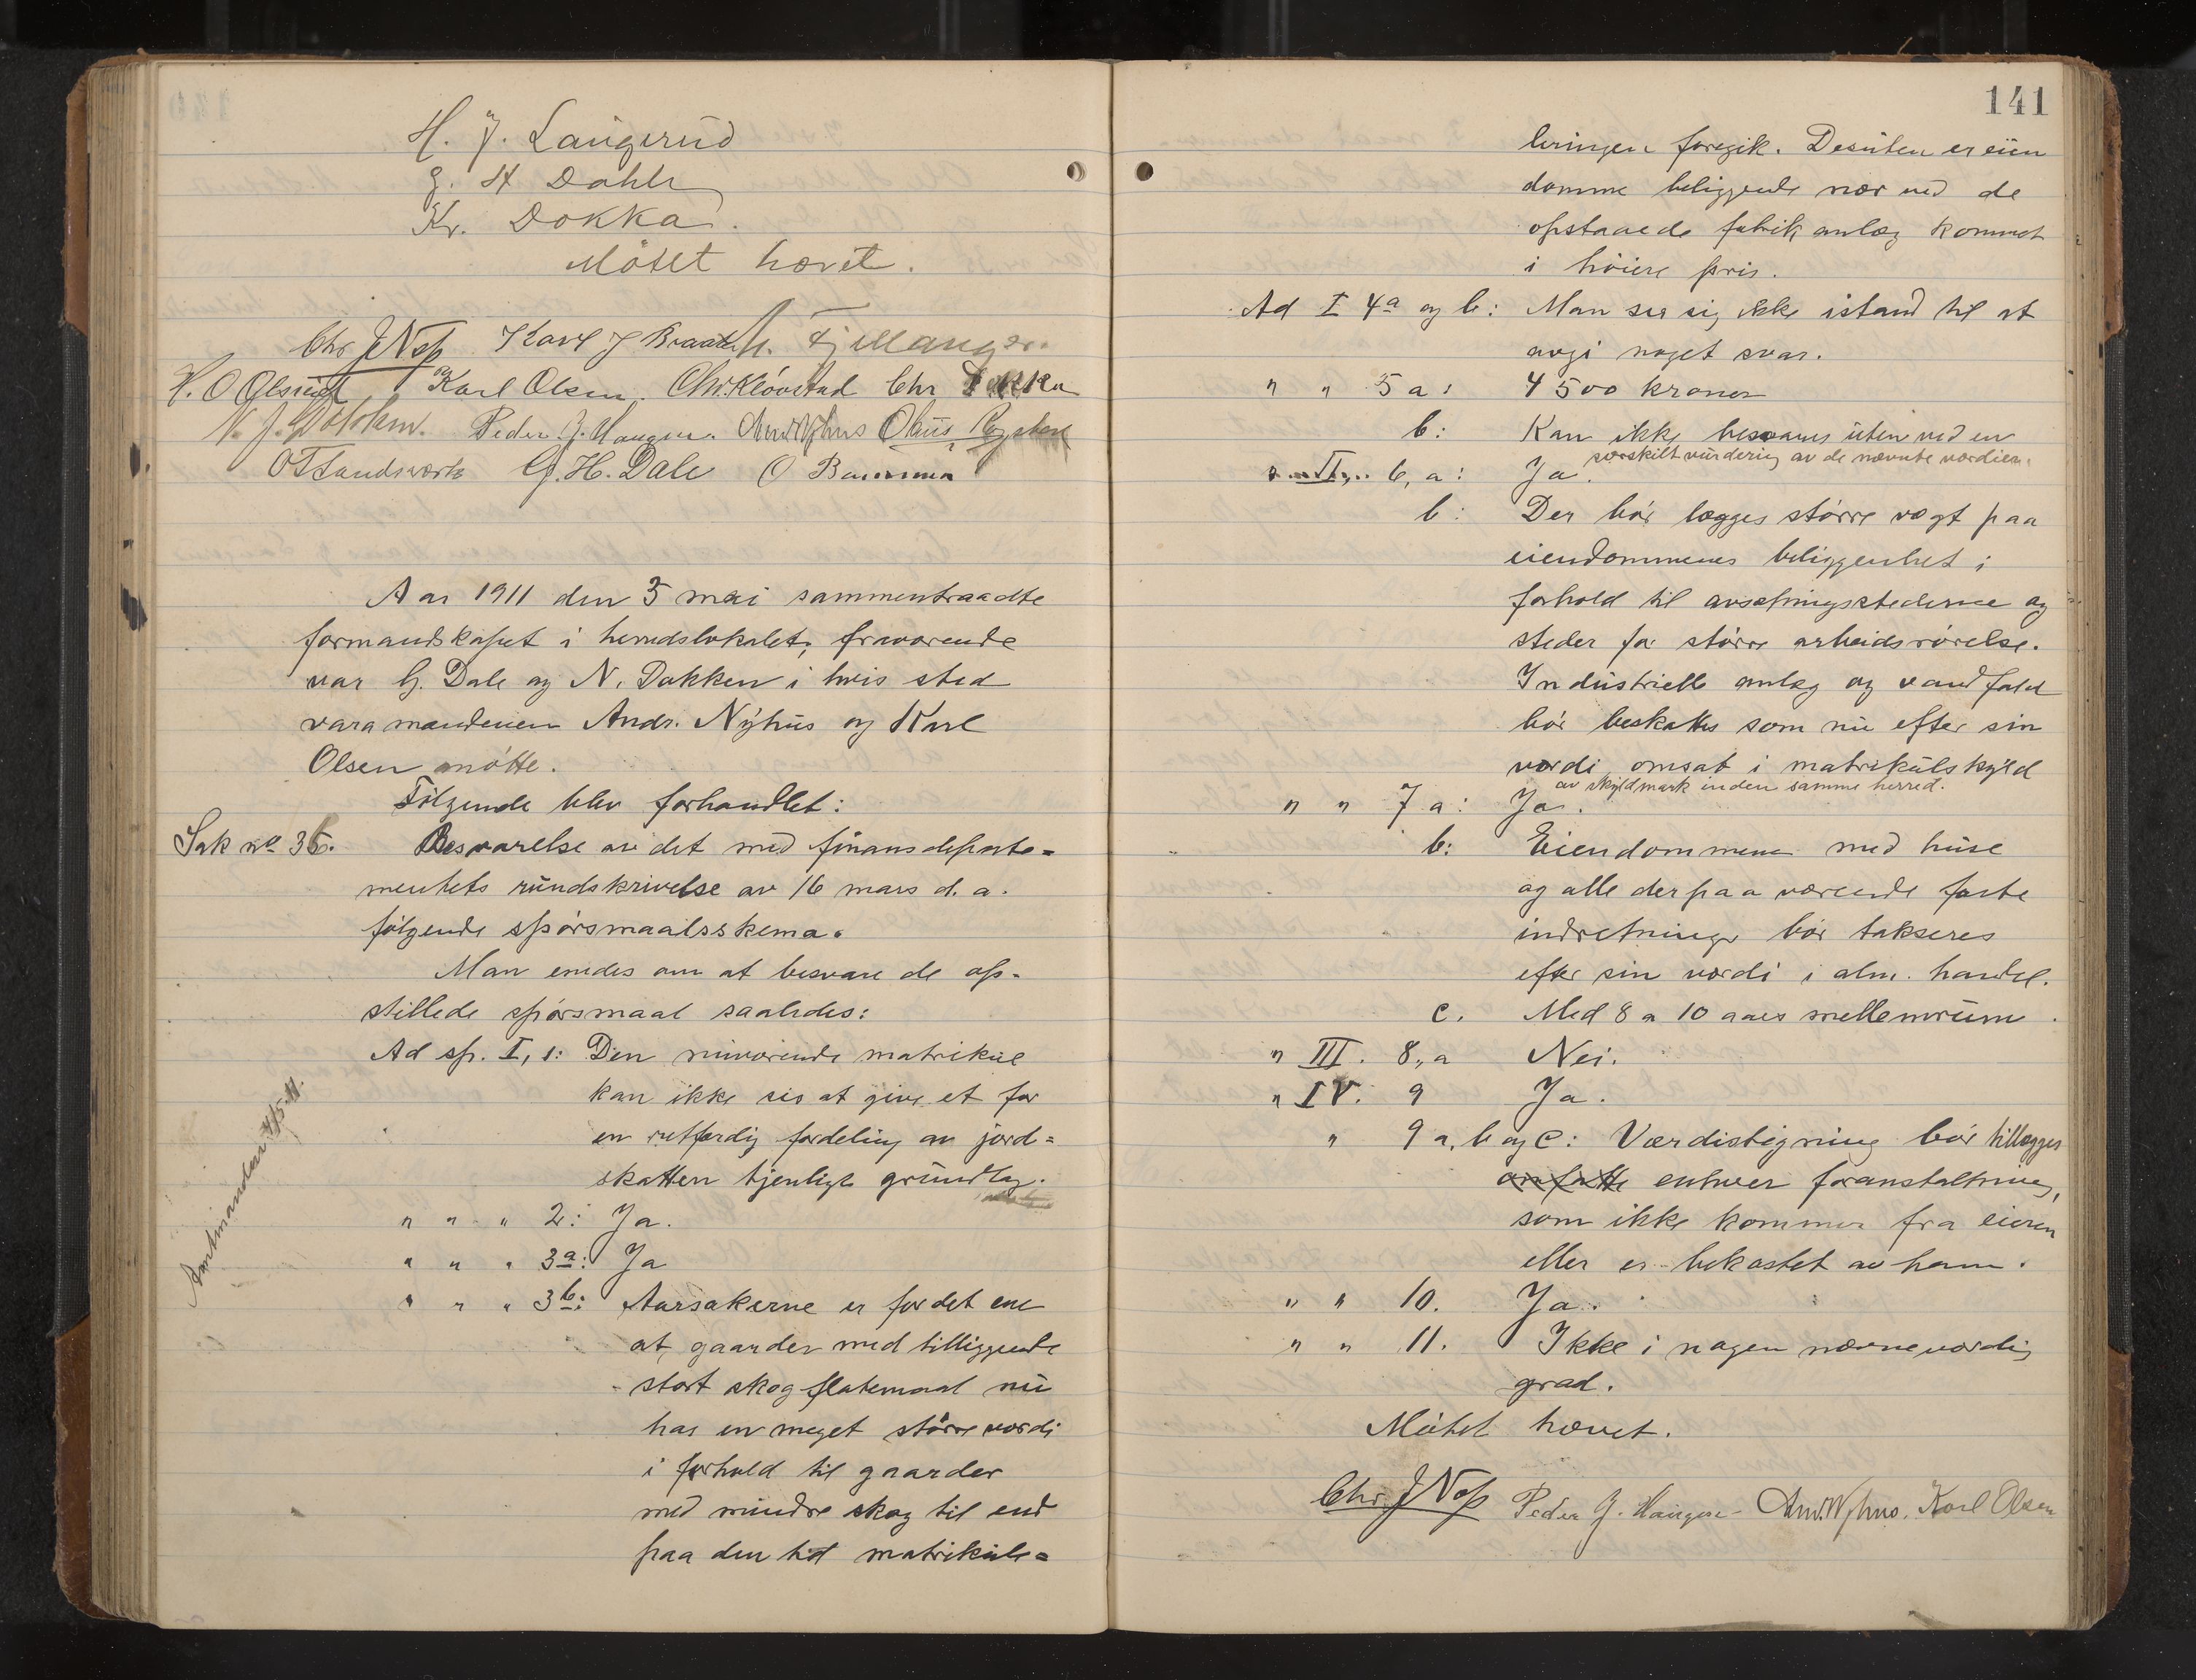 H. J. Langerud
G. H Dahle
Kr. Dokka.
Mötet hævet.
Chr J Nøp Karl J Braata H. Fjellanger.
H. O Olsrud Karl Olsen. Chr. Kløvstad Chr Dokka
N. J. Dokken. Peder J. Haugen. And Nyhus
O T Landsværk G. H. Dale O
Aar 1911 den 5 mai sammentraadte
formandskapet i herredslokalet, fraværende
var G. Dale og N. Dokken i hvis sted
varamændenen Andr. Nÿhus og Karl
Olsen møtte.
Følgende blev forhandlet:
Sak no 35. Besvarelse av det med finansdeparte=
mentets rundskrivelse av 16 mars d. a.
følgende spørsmaalsskema.
Man enedes om at besvare de op-
stillede spørsmaal saaledes:
Ad sp. I, 1: Den nuværende matrikul
kan ikke sies at give et for
en retfærdig fordeling av jord=
skatten tjenligt grundlag.
" " " 2: Ja.
" " " 3a: Ja
" " " 3b: Aarsakerne er for det ene
at gaarder med tilliggende
stort skog flatemaal nu
har en meget større værdi
i forhold til gaarder
med mindre skog til end
paa den tid matrikule=
Amtmanden 4/5-11.
141
leringen foregik. Desuten er eien
domme beliggende nær ved de
opstaaede fabrikanlæg kommet
i høiere pris.
Ad I 4a og b: Man ser sig ikke istand til at
avgi noget svar.
" " 5 a: 4500 kroner
b: Kan ikke besvares uten ved en
særskilt vurdering av de nævnte værdier.
" II 6, a: Ja.
b: Der bør lægges større vægt paa
eiendommenes beliggenhet i
forhold til avsetningsstederne og
steder for større arbeidsrørelse.
Industrielle anlæg og vandfald
bør beskattes som nu efter sin
værdi omsat i matrikulskyld
av skyldmark inden samme herred.
" " 7 a: Ja.
b: Eiendommene med huse
og alle derpaa værende faste
indretninger bør takseres
efter sin værdi i alm. handel.
c. Med 8 a 10 aars mellemrum.
" III. 8, a Nei.
" IV. 9 Ja.
" 9 a, b og c: Værdistigning bør tillægges
omfatte enhver foranstaltning,
som ikke kommer fra eieren
eller er bekostet av ham.
" " 10. Ja.
" " 11. Ikke i nogen nævneværdig
grad.
Møtet hævet.
Chr. J Nøp Peder J. Haugen And. Nyhus. Karl Olsen